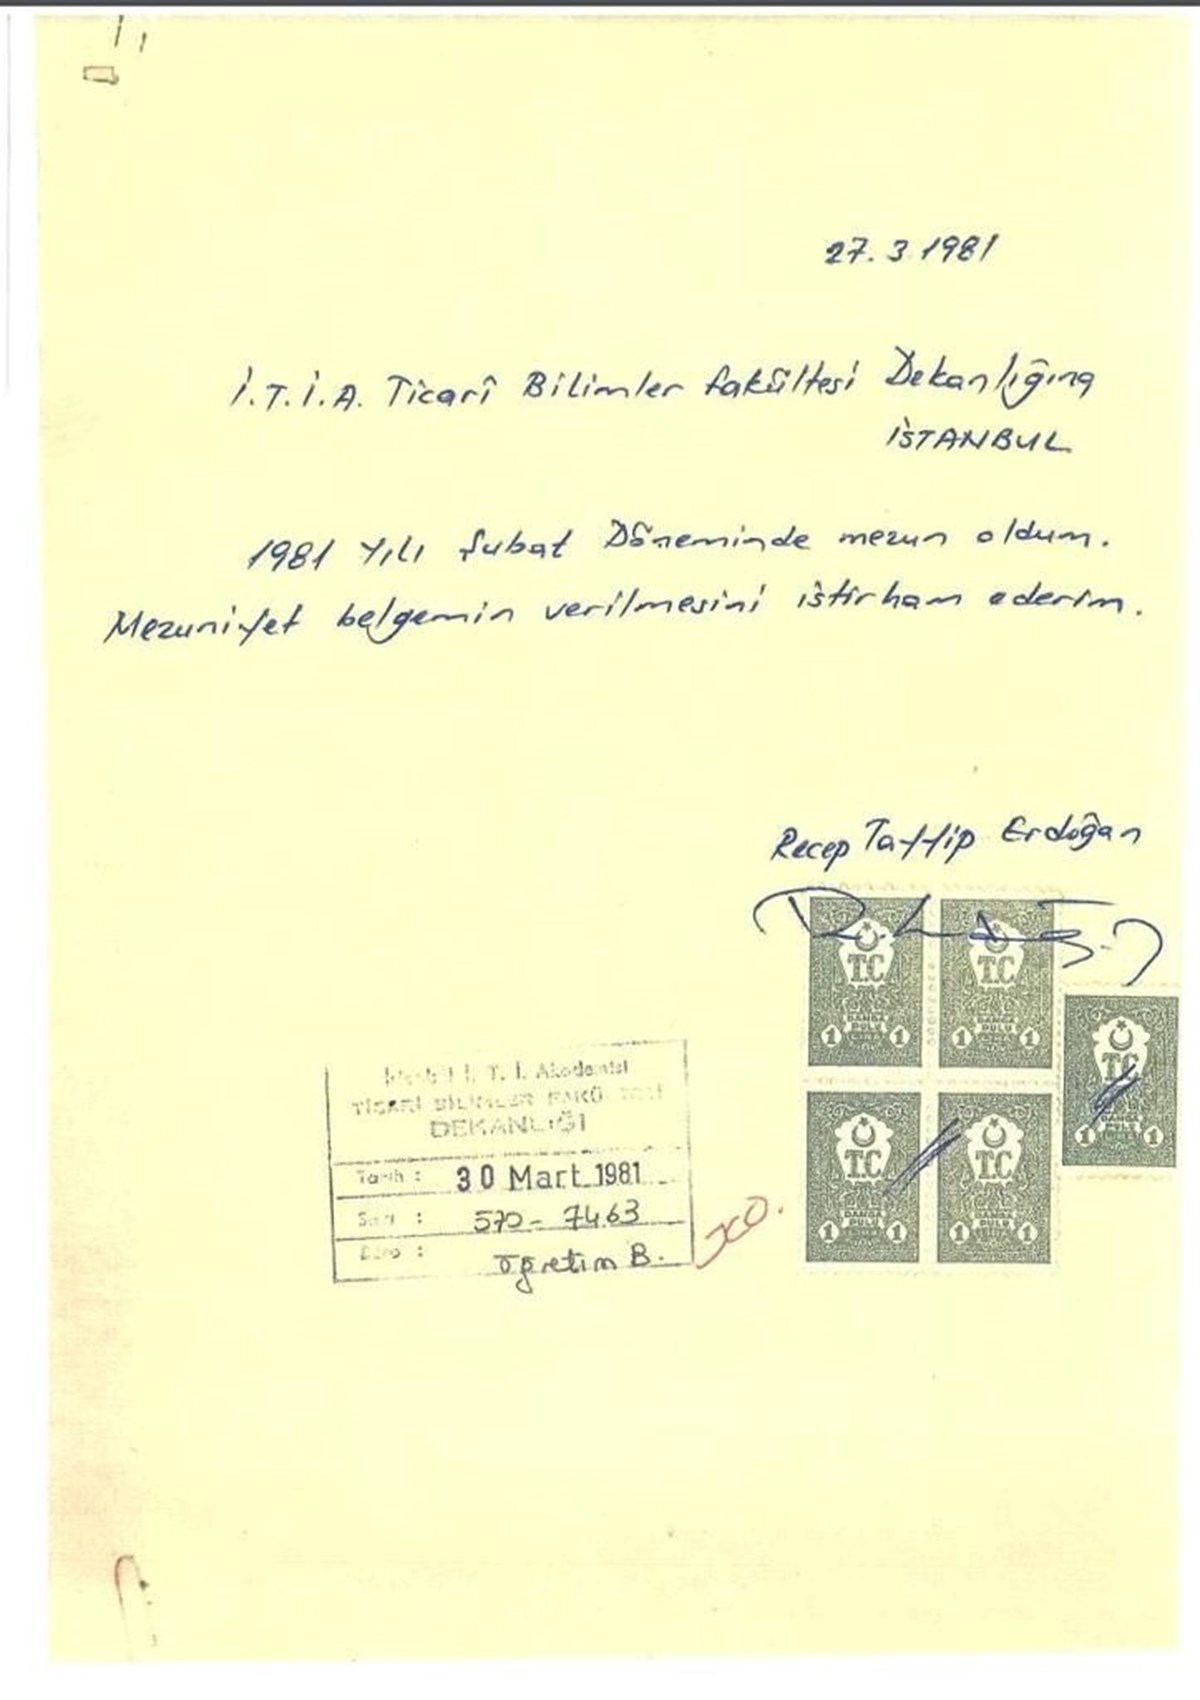 27.3.1981
İ.T.İ.A. Ticarî Bilimler fakültesi Dekanlığına
İSTANBUL
1981 Yılı Şubat Döneminde mezun oldum.
Mezuniyet belgemin verilmesini istirham ederim.
Recep Tayyip Erdoğan
T.C
T.C
DAMGA PULU
1 1
DAMGA PULU
1 1
T.C
1 1
T.C
T.C
DAMGA PULU
1 1
DAMGA PULU
1 1
İ. T. İ. Akademisi
TİCARİ BİLİMLER
DEKANLIĞI
Tarih : 30 Mart 1981
Sayı : 570 - 7463
Büro : Öğretim B.